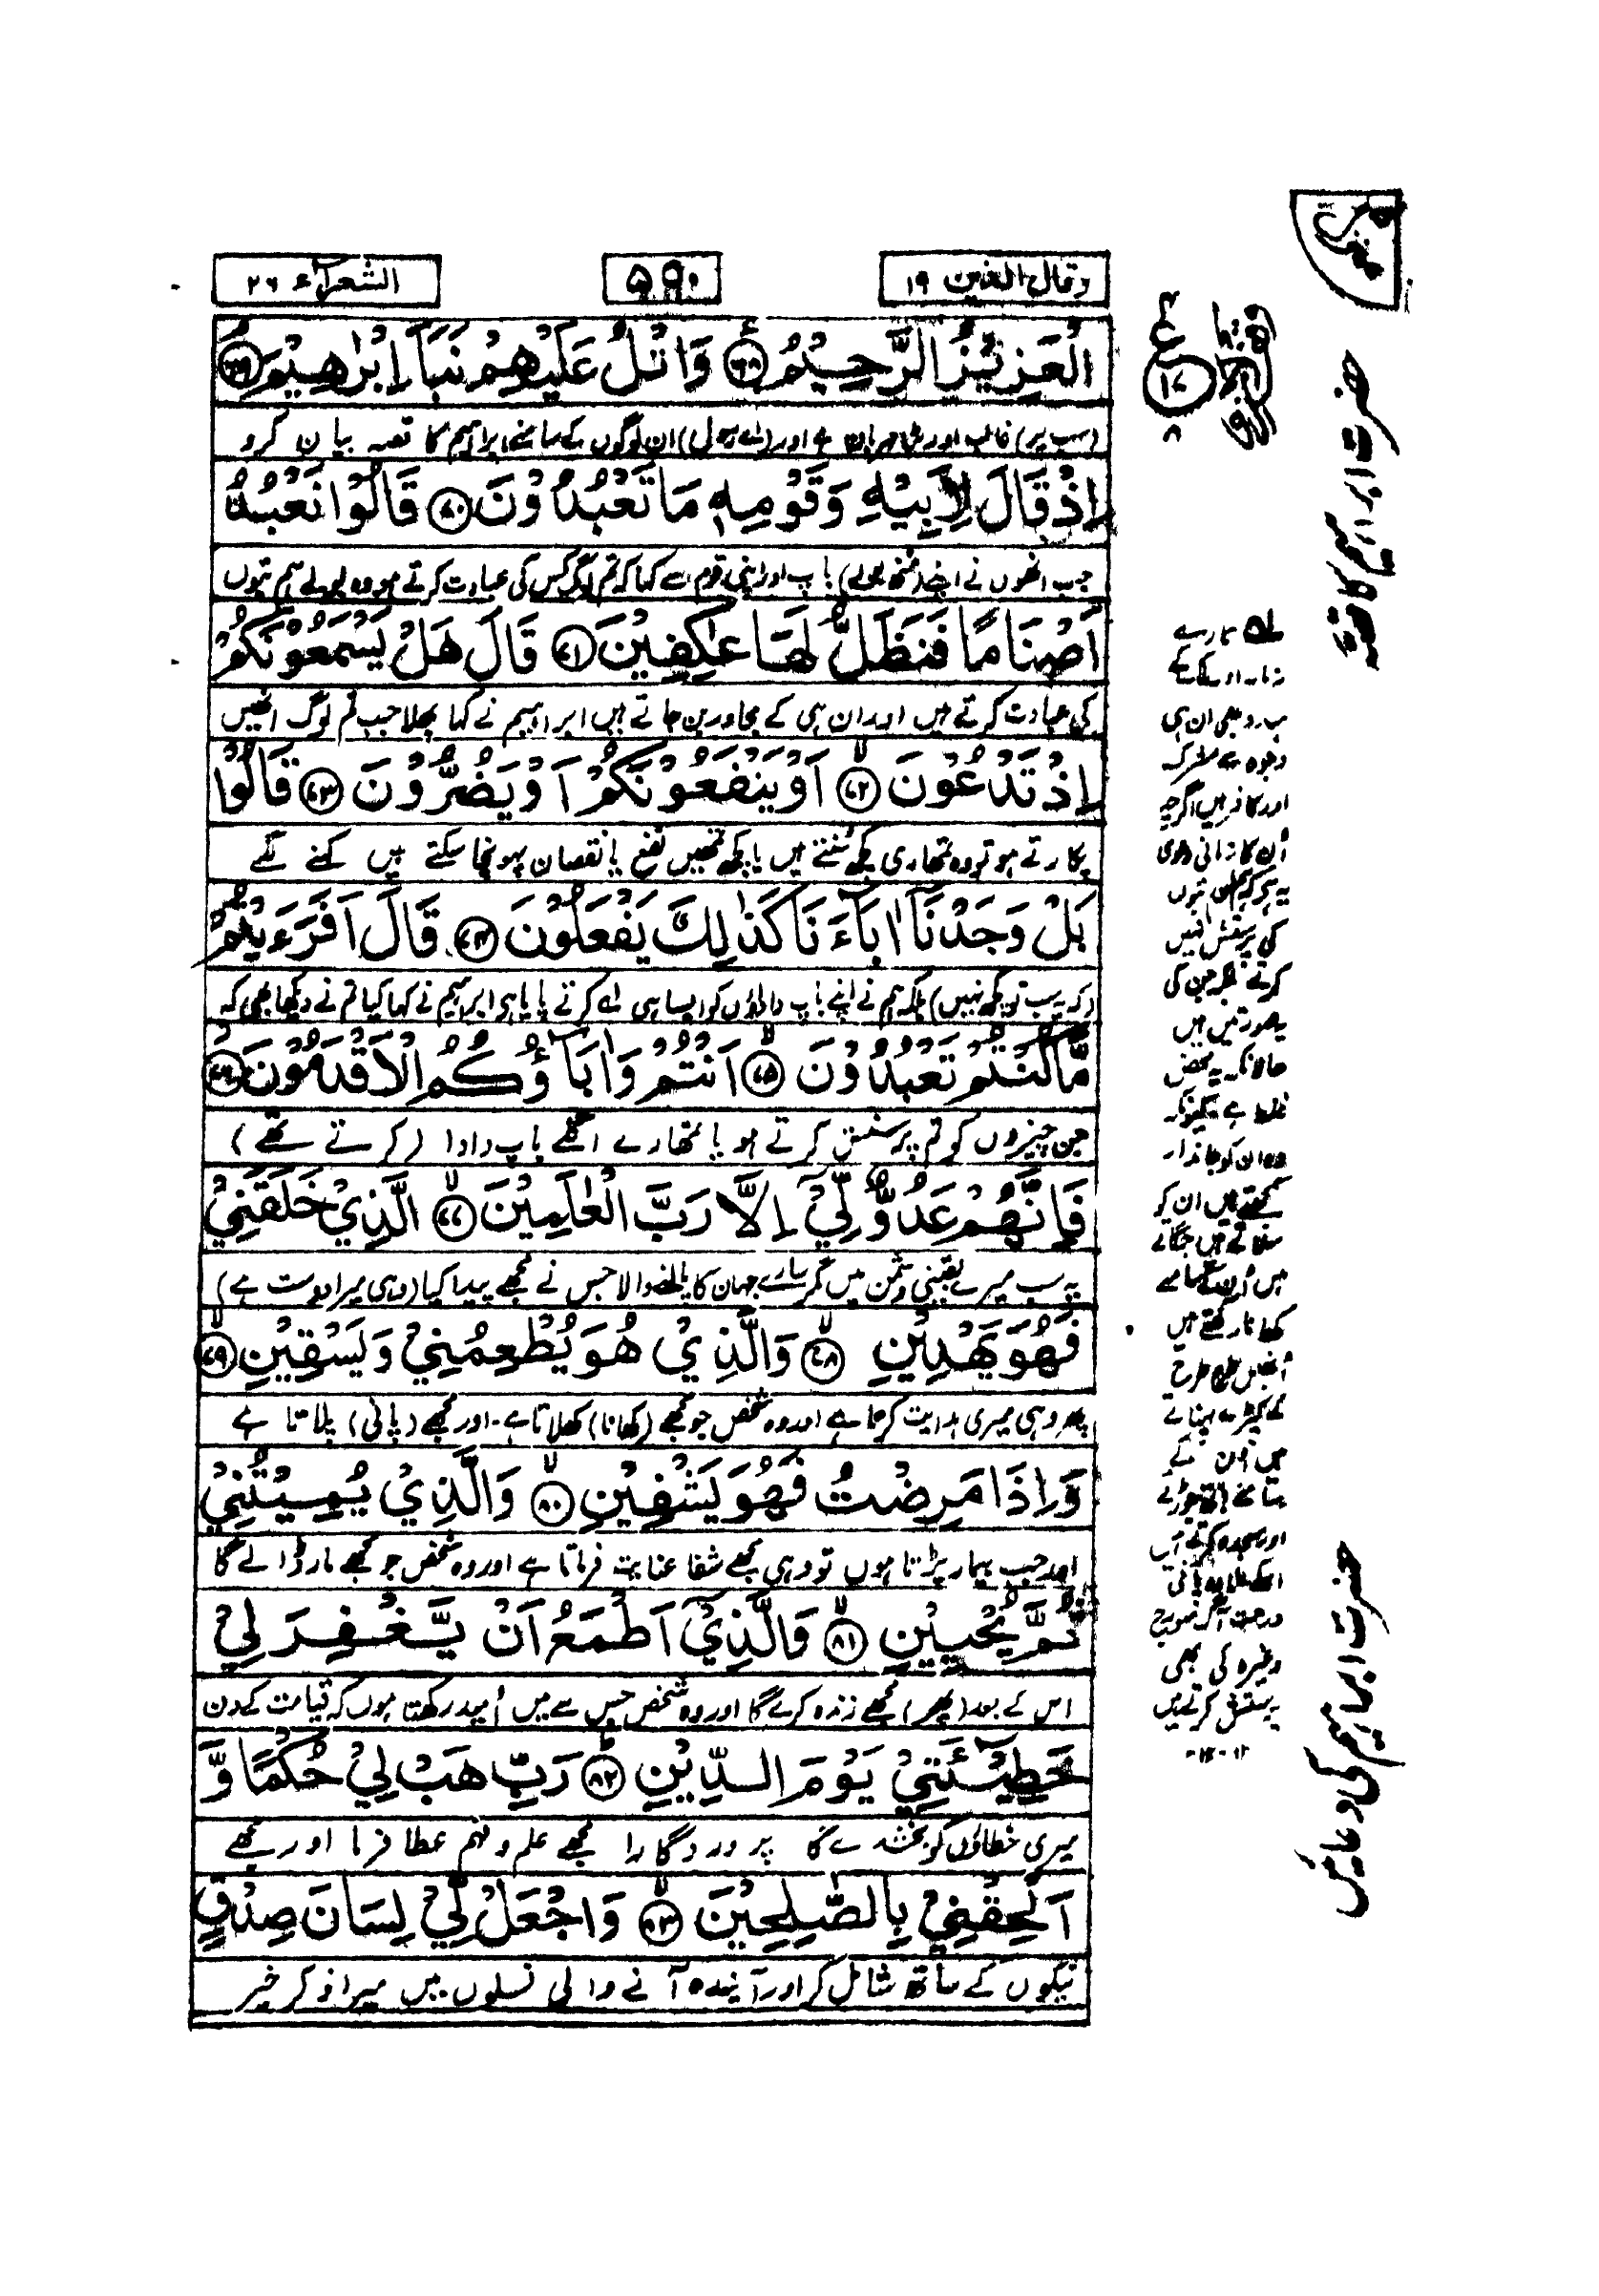 وقال الذین ١٩
٥٩٠
الشعرآء ٢٦
الْعَزِيْزُ الرَّحِيْمُ ﴿٦٨﴾ وَاتْلُ عَلَيْهِمْ نَبَاَ اِبْرٰهِيْمَ ﴿٦٩﴾
(سب پر) غالب اور بڑا مہربان ہے اور (اے رسول) ان لوگوں کے سامنے ابراہیم کا قصہ بیان کرو
اِذْ قَالَ لِاَبِيْهِ وَقَوْمِهٖ مَا تَعْبُدُوْنَ ﴿٧٠﴾ قَالُوْا نَعْبُدُ
جب انھوں نے اپنے (منھ بولے) باپ اور اپنی قوم سے کہا کہ تم لوگ کس کی عبادت کرتے ہو وہ بولے ہم بتوں
اَصْنَامًا فَنَظَلُّ لَهَا عٰكِفِيْنَ ﴿٧١﴾ قَالَ هَلْ يَسْمَعُوْنَكُمْ
کی عبادت کرتے ہیں اور ان ہی کے مجاور بن جاتے ہیں ابراہیم نے کہا بھلا جب تم لوگ انھیں
اِذْ تَدْعُوْنَ ﴿٧٢﴾ اَوْ يَنْفَعُوْنَكُمْ اَوْ يَضُرُّوْنَ ﴿٧٣﴾ قَالُوْا
پکارتے ہو تو وہ تمھاری کچھ سنتے ہیں یا کچھ تمھیں نفع یا نقصان پہونچا سکتے ہیں کہنے لگے
بَلْ وَجَدْنَآ اٰبَآءَنَا كَذٰلِكَ يَفْعَلُوْنَ ﴿٧٤﴾ قَالَ اَفَرَءَيْتُمْ
(کہ یہ سب تو کچھ نہیں) بلکہ ہم نے اپنے باپ داداؤں کو ایسا ہی کرتے پایا ہے ابراہیم نے کہا کیا تم نے دیکھا بھی کہ
مَّا كُنْتُمْ تَعْبُدُوْنَ ﴿٧٥﴾ اَنْتُمْ وَاٰبَآؤُكُمُ الْاَقْدَمُوْنَ ﴿٧٦﴾
جن چیزوں کو تم پرستش کرتے ہو یا تمھارے اگلے باپ دادا (کرتے تھے)
فَاِنَّهُمْ عَدُوٌّ لِّيْٓ اِلَّا رَبَّ الْعٰلَمِيْنَ ﴿٧٧﴾ الَّذِيْ خَلَقَنِيْ
یہ سب میرے یقینی دشمن ہیں مگر سارے جہان کا پالنے والا جس نے مجھے پیدا کیا (وہی میرا دوست ہے)
فَهُوَ يَهْدِيْنِ ﴿٧٨﴾ وَالَّذِيْ هُوَ يُطْعِمُنِيْ وَيَسْقِيْنِ ﴿٧٩﴾
پھر وہی میری ہدایت کرتا ہے اور وہ شخص جو مجھے (کھانا) کھلاتا ہے۔ اور مجھے (پانی) پلاتا ہے
وَاِذَا مَرِضْتُ فَهُوَ يَشْفِيْنِ ﴿٨٠﴾ وَالَّذِيْ يُمِيْتُنِيْ
اور جب بیمار پڑتا ہوں تو وہی مجھے شفا عنایت فرماتا ہے اور وہ شخص جو مجھے مار ڈالے گا
ثُمَّ يُحْيِيْنِ ﴿٨١﴾ وَالَّذِيْٓ اَطْمَعُ اَنْ يَّغْفِرَ لِيْ
اس کے بعد (پھر) مجھے زندہ کرے گا اور وہ شخص جس سے میں اُمید رکھتا ہوں کہ قیامت کے دن
خَطِيْٓئَتِيْ يَوْمَ الدِّيْنِ ﴿٨٢﴾ رَبِّ هَبْ لِيْ حُكْمًا وَّ
میری خطاؤں کو بخشدے گا پروردگارا مجھے علم و فہم عطا فرما اور مجھے
اَلْحِقْنِيْ بِالصّٰلِحِيْنَ ﴿٨٣﴾ وَاجْعَلْ لِّيْ لِسَانَ صِدْقٍ
نیکوں کے ساتھ شامل کر اور آیندہ آنے والی نسلوں میں میرا ذکر خیر
ع
٨
حضرت ابراہیم کا قصہ
لے ہمارے
ان ہی
وجوہ سے مشرک
اور کافر ہیں اگرچہ
اُن کا زبانی دعوی
یہ ہے کہ ہم بتوں
کی پرستش نہیں
کرتے بلکہ جن کی
یہ صورتیں ہیں
حالانکہ یہ محض
غلط ہے کیونکہ
وہ ان کو جاندار
سمجھتے ہیں ان کو
سلاتے ہیں جگاتے
ہیں اُن کے سامنے
کھانا رکھتے ہیں
اُنھیں طرح طرح
کے کپڑے پہناتے
ہیں اُن کے
سامنے ہاتھ جوڑتے
اور سجدہ کرتے
اسکے علاوہ پانی
درخت آگ سورج
وغیرہ کی بھی
پرستش کرتے ہیں
١٢-١٢-
حضرت ابراہیم کی دعائیں